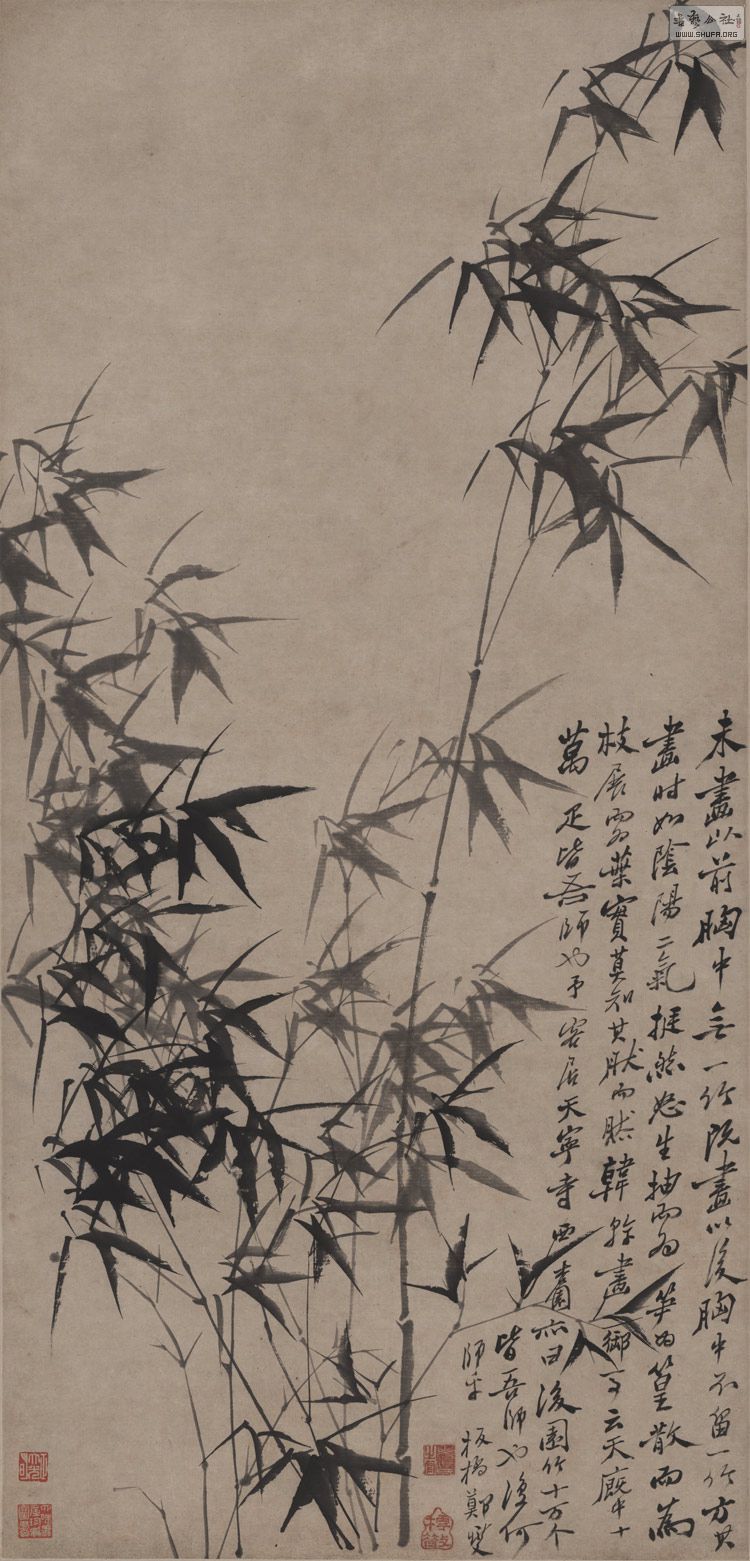 未畫以前胸中無一竹既畫以後胸中不留一竹方其
畫時如陰陽二氣挺然怒生抽而為筍為篁散而為
枝展而為葉實莫知其然而然韓幹畫御馬云天廄中十
萬疋皆吾師也予客居天寧寺西杏園亦曰後園竹十万个
皆吾師也復何
師乎板橋鄭燮
WWW.SHUFA.ORG